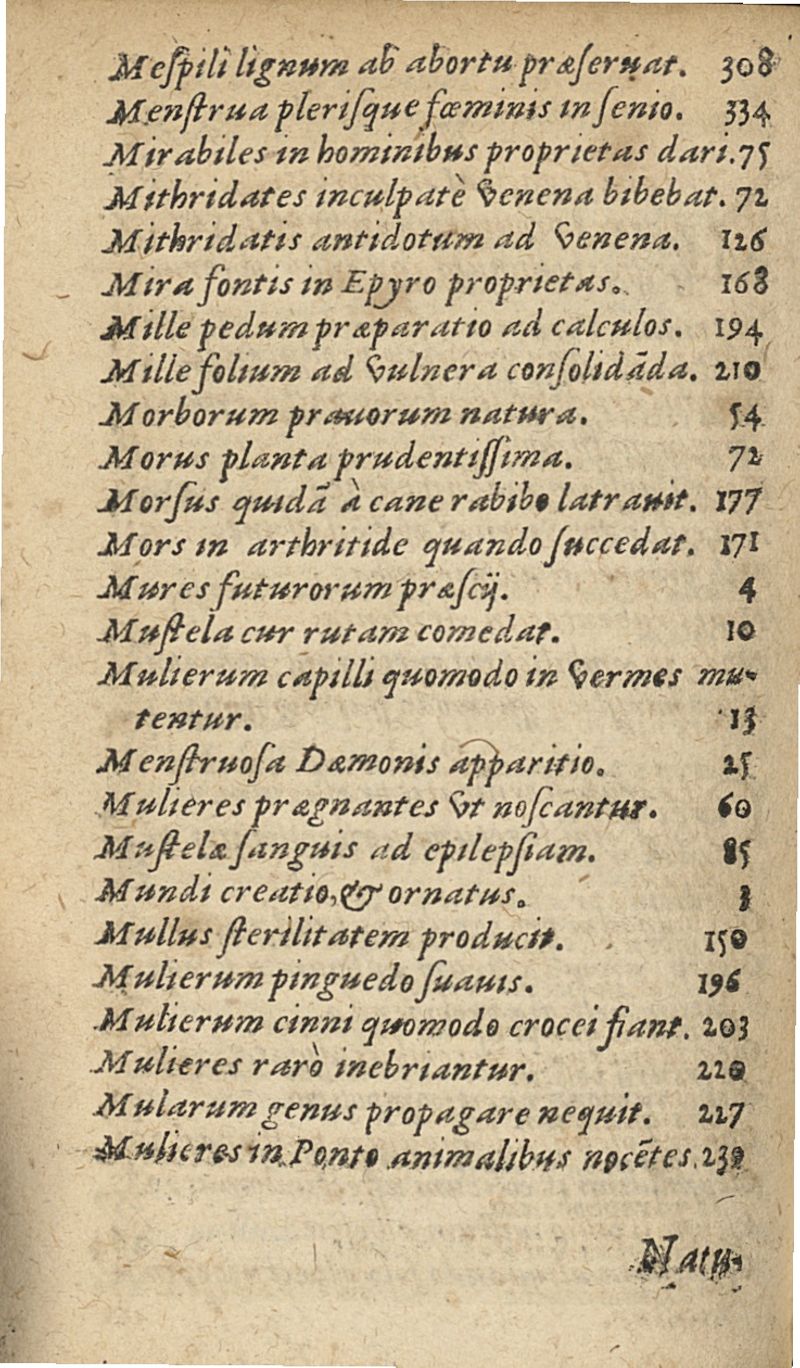 Meſpili lignum ab abortu præſeruat. 308
Menſtrua pleriſque fœminis in ſenio. 334
Mirabiles in hominibus proprietas dari. 75
Mithridates inculpatè venena bibebat. 72
Mithridatis antidotum ad venena. 126
Mira fontis in Epyro proprietas. 168
Mille pedum præparatio ad calculos. 194
Mille folium ad vulnera conſolidāda. 210
Morborum prauorum natura. 54
Morus planta prudentiſſima. 72
Morſus quidā à cane rabibo latrauit. 177
Mors in arthritide quando ſuccedat. 171
Mures futurorum præſcij. 4
Muſtela cur rutam comedat. 10
Mulierum capilli quomodo in vermes mu-
tentur. 13
Menſtruoſa Dæmonis apparitio. 25
Mulieres prægnantes vt noſcantur. 60
Muſtelæ ſanguis ad epilepſiam. 85
Mundi creatio, & ornatus. 3
Mullus ſterilitatem producit. 150
Mulierum pinguedo ſuauis. 196
Mulierum cinni quomodo crocei fiant. 203
Mulieres rarò inebriantur. 220
Mularum genus propagare nequit. 227
Mulieres in Ponto animalibus nocētes.
Natu-